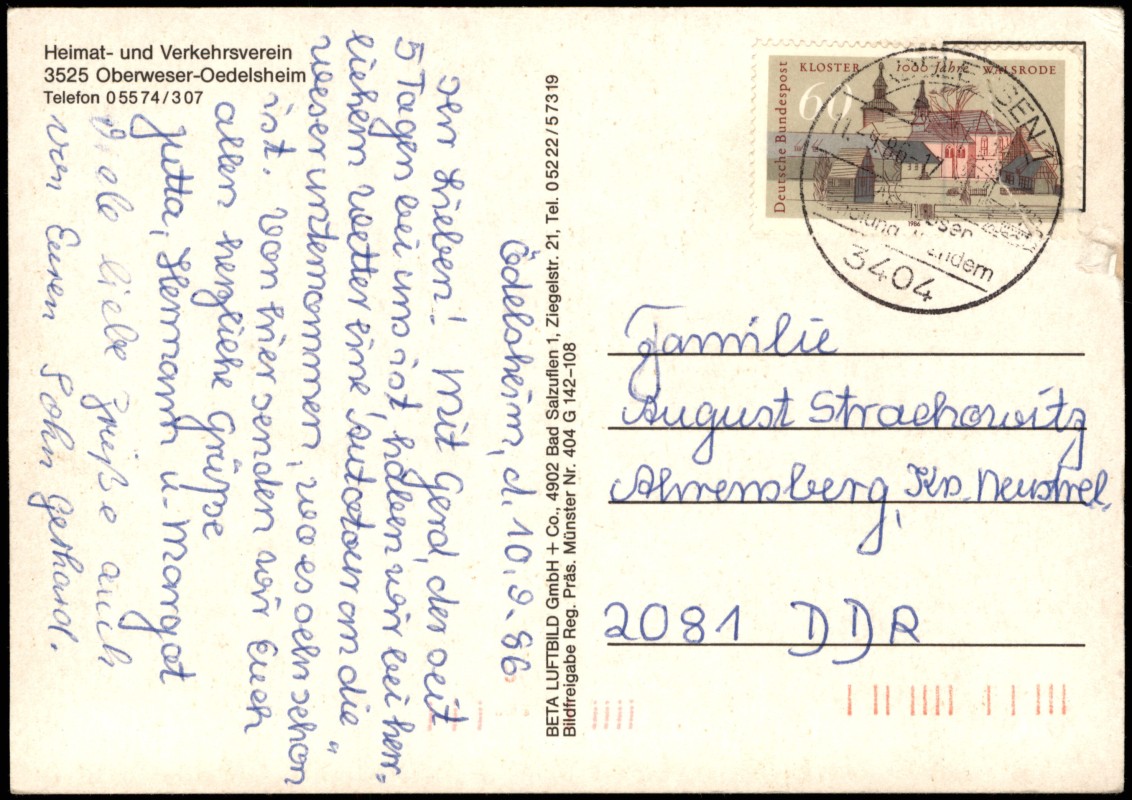 Heimat- und Verkehrsverein
3525 Oberweser-Oedelsheim
Telefon 05574/307
Ödelsheim, d. 10.9.86
Ihr Lieben! Mit Gerd, der seit
5 Tagen bei uns ist, haben wir bei herr-
lichem Wetter eine "Autotour an die
Weser" unternommen, wo es sehr schön
ist. Von hier senden wir Euch
allen herzliche Grüße
Jutta, Hermann u. Margat
Viele liebe Grüße auch
von Euren Sohn Gerhard.
BETA LUFTBILD GmbH + Co., 4902 Bad Salzuflen 1, Ziegelstr. 21, Tel. 05222/57319
Bildfreigabe Reg. Präs. Münster Nr. 404 G 142-108
Deutsche Bundespost
KLOSTER 1000 Jahre WALSRODE
60
1986
9.86-1
3404
Familie
August Strachowitz
Ahrensberg, Krs. Neustrel.
2081 DDR